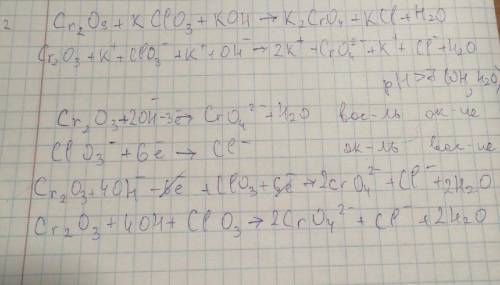 2 Cr₂O₃ + KClO₃ + KOH → K₂CrO₄ + KCl + H₂O
Cr₂O₃ + K⁺ + ClO₃⁻ + K⁺ + OH⁻ → 2K⁺ + CrO₄²⁻ + K⁺ + Cl⁻ + H₂O
pH > 7 (OH⁻, H₂O)
Cr₂O₃ + 2OH⁻ - 3ē → CrO₄²⁻ + H₂O вос-ль ок-ие
ClO₃⁻ + 6ē → Cl⁻ ок-ль вос-ие
Cr₂O₃ + 4OH⁻ - 6ē + ClO₃ + 6ē → 2CrO₄²⁻ + Cl⁻ + 2H₂O
Cr₂O₃ + 4OH + ClO₃ → 2CrO₄²⁻ + Cl⁻ + 2H₂O